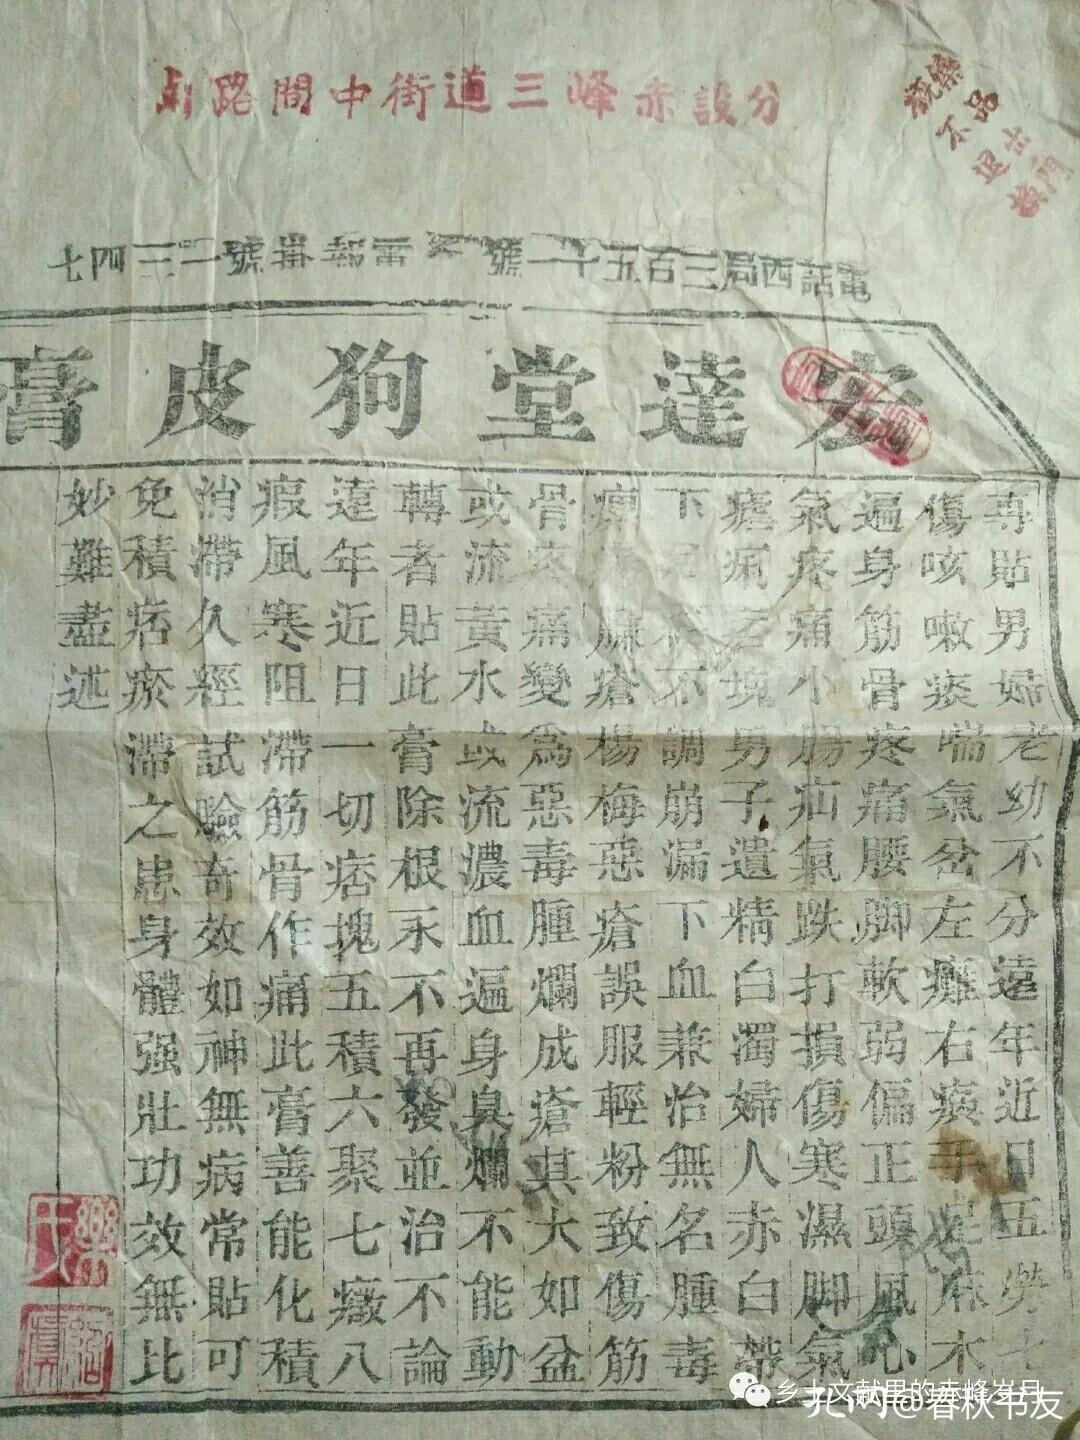 分設赤峰三道街中間路南
藥品出門
概不退換
電話西局三百五十一號 電報掛號一三四七
宏達堂狗皮膏
專貼男婦老幼不分遠年近日五勞七
傷咳嗽痰喘氣岔左癱右瘓手足麻木
遍身筋骨疼痛腰脚軟弱偏正頭風心
氣疼痛小腸疝氣跌打損傷寒濕脚氣
瘧痢痞塊男子遺精白濁婦人赤白帶
下不調崩漏下血兼治無名腫毒
臁瘡楊梅惡瘡誤服輕粉致傷筋
骨疼痛變為惡毒腫爛成瘡其大如盆
或流黃水或流濃血遍身臭爛不能動
轉者貼此膏除根永不再發並治不論
遠年近日一切痞塊五積六聚七癥八
瘕風寒阻滯筋骨作痛此膏善能化積
消滯久經試驗奇效如神無病常貼可
免積痞瘀滯之患身體强壯功效無比
妙難盡述
樂氏
乡土文献里的赤峰岁月
孔网@春秋书友